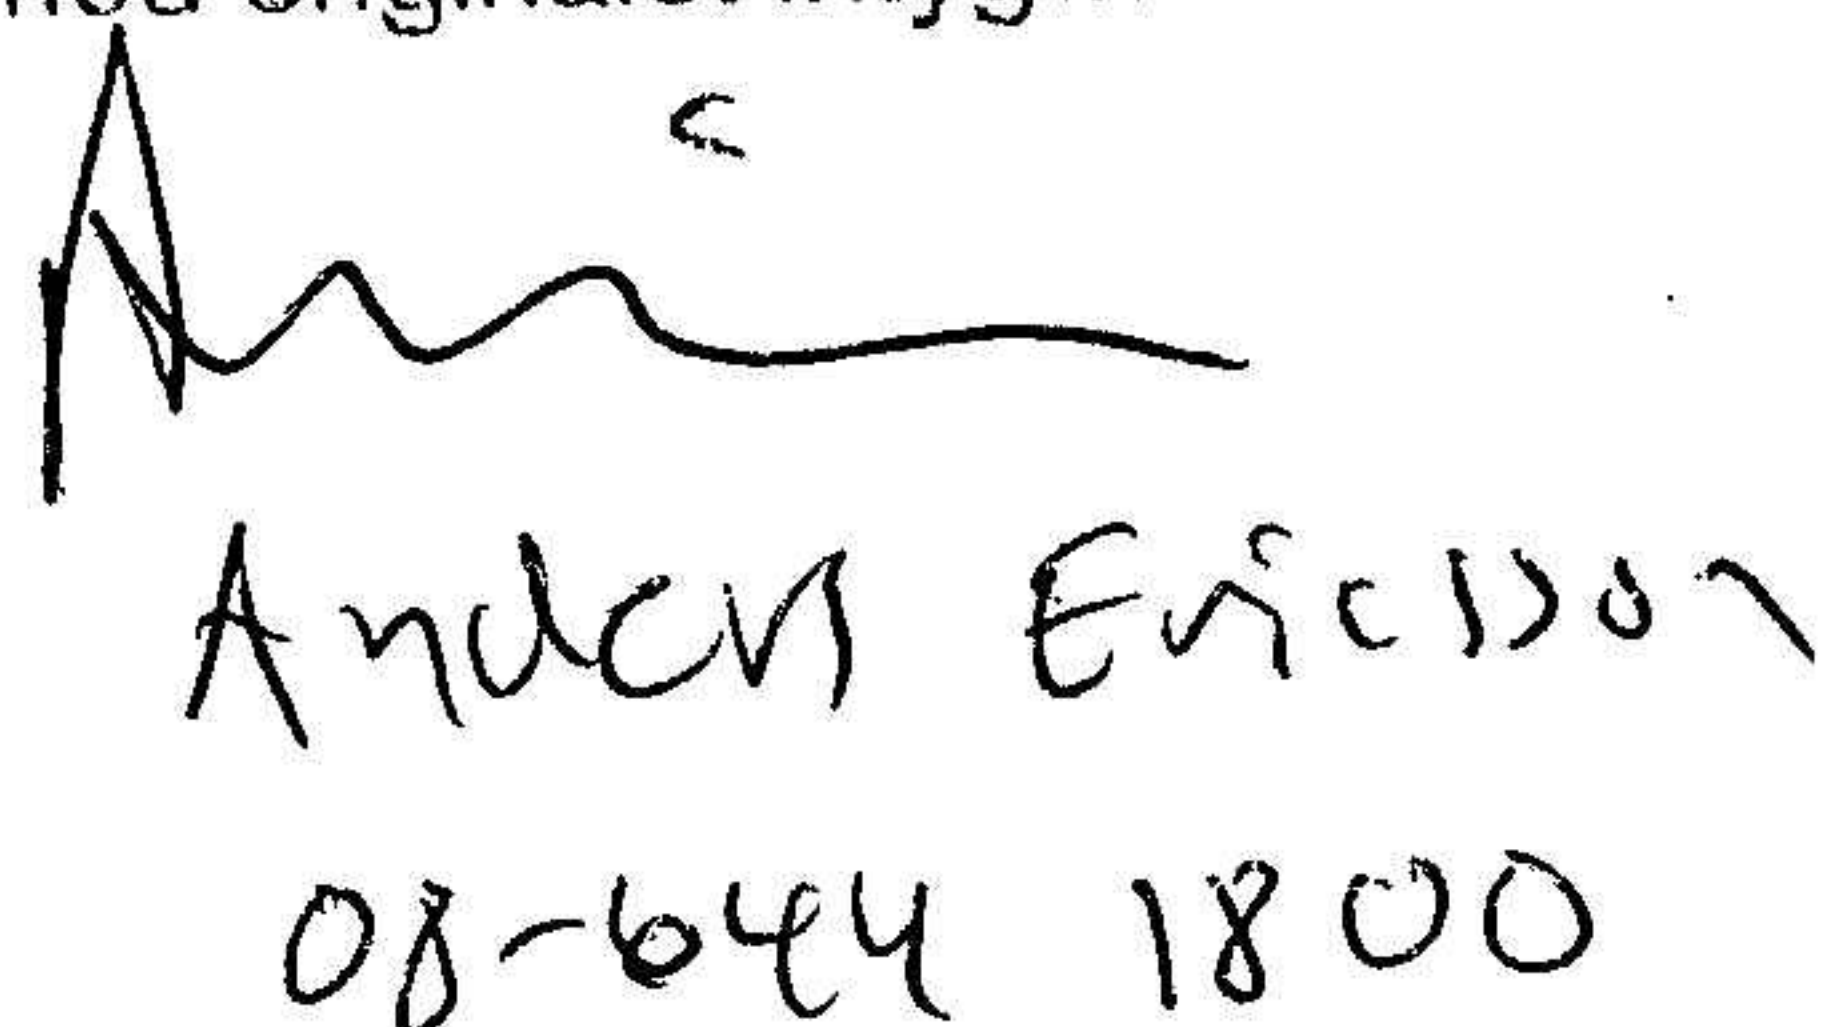 Anders Ericsson
08-644 1800